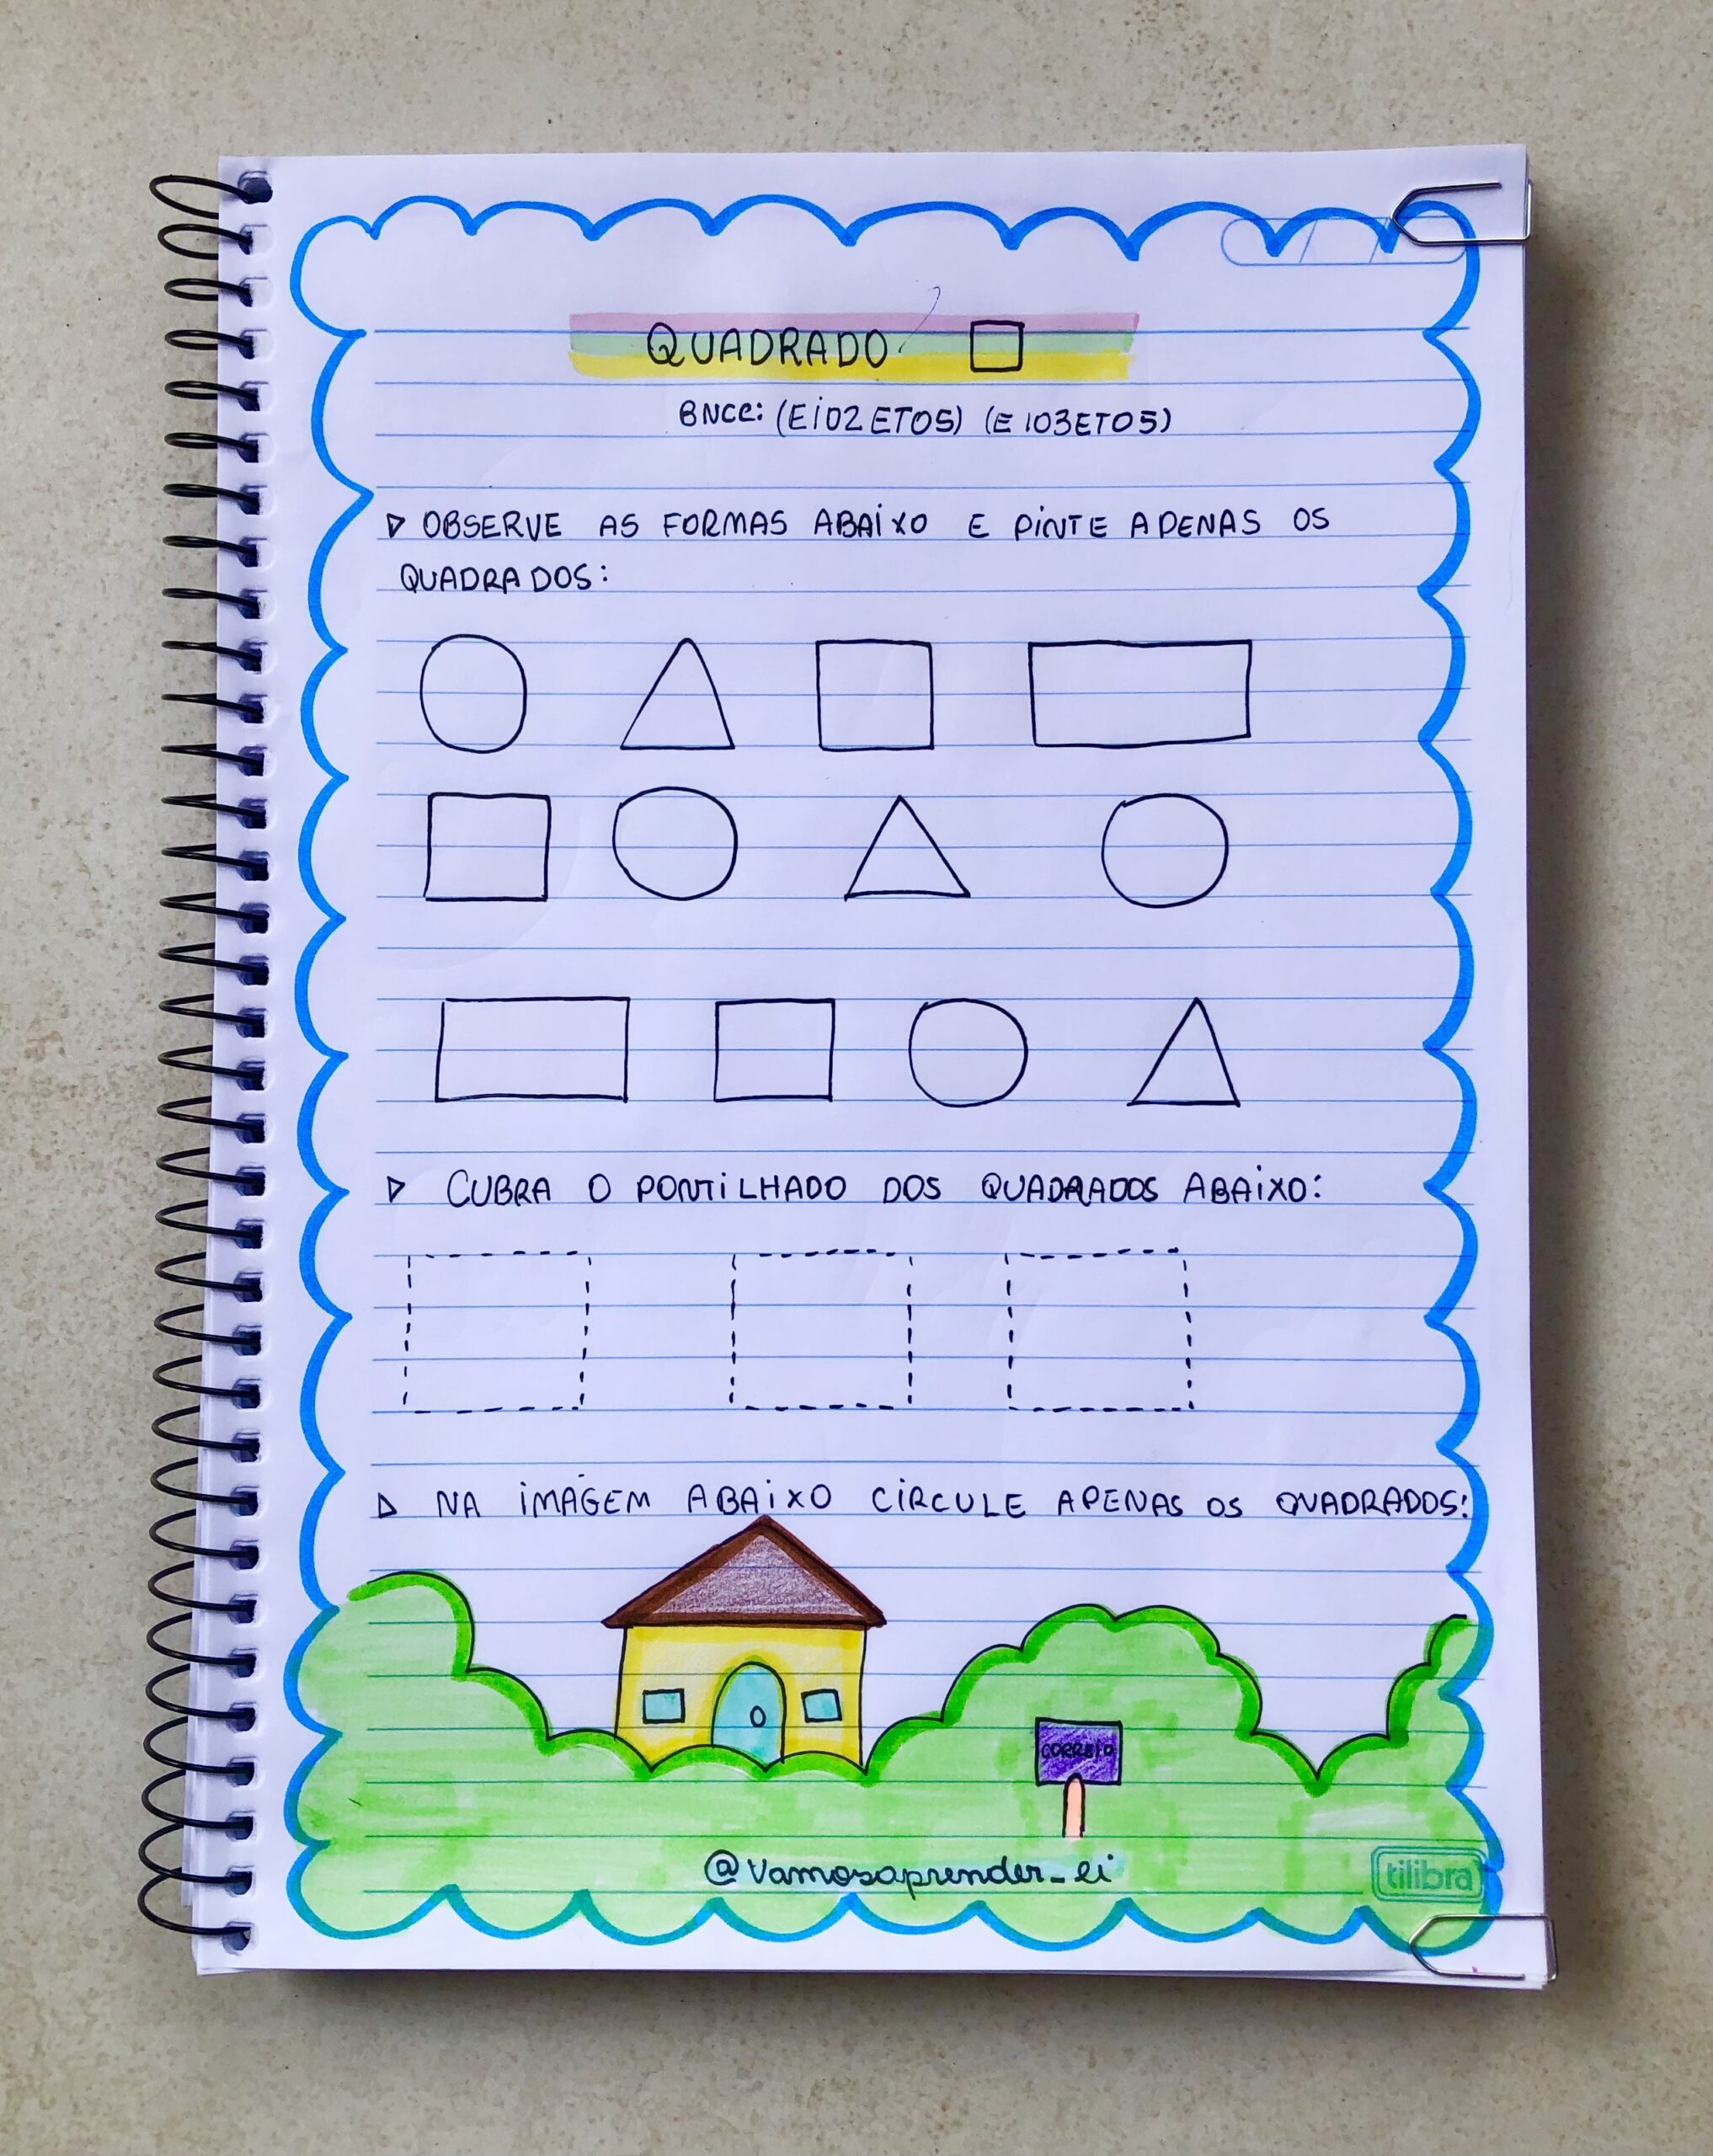 QUADRADO
BNCC: (EI02ET05) (EI03ET05)
OBSERVE AS FORMAS ABAIXO E PINTE APENAS OS
QUADRADOS:
CUBRA O PONTILHADO DOS QUADRADOS ABAIXO:
NA IMAGEM ABAIXO CIRCULE APENAS OS QUADRADOS:
CORREIO
@vamosaprender_ei
tilibra